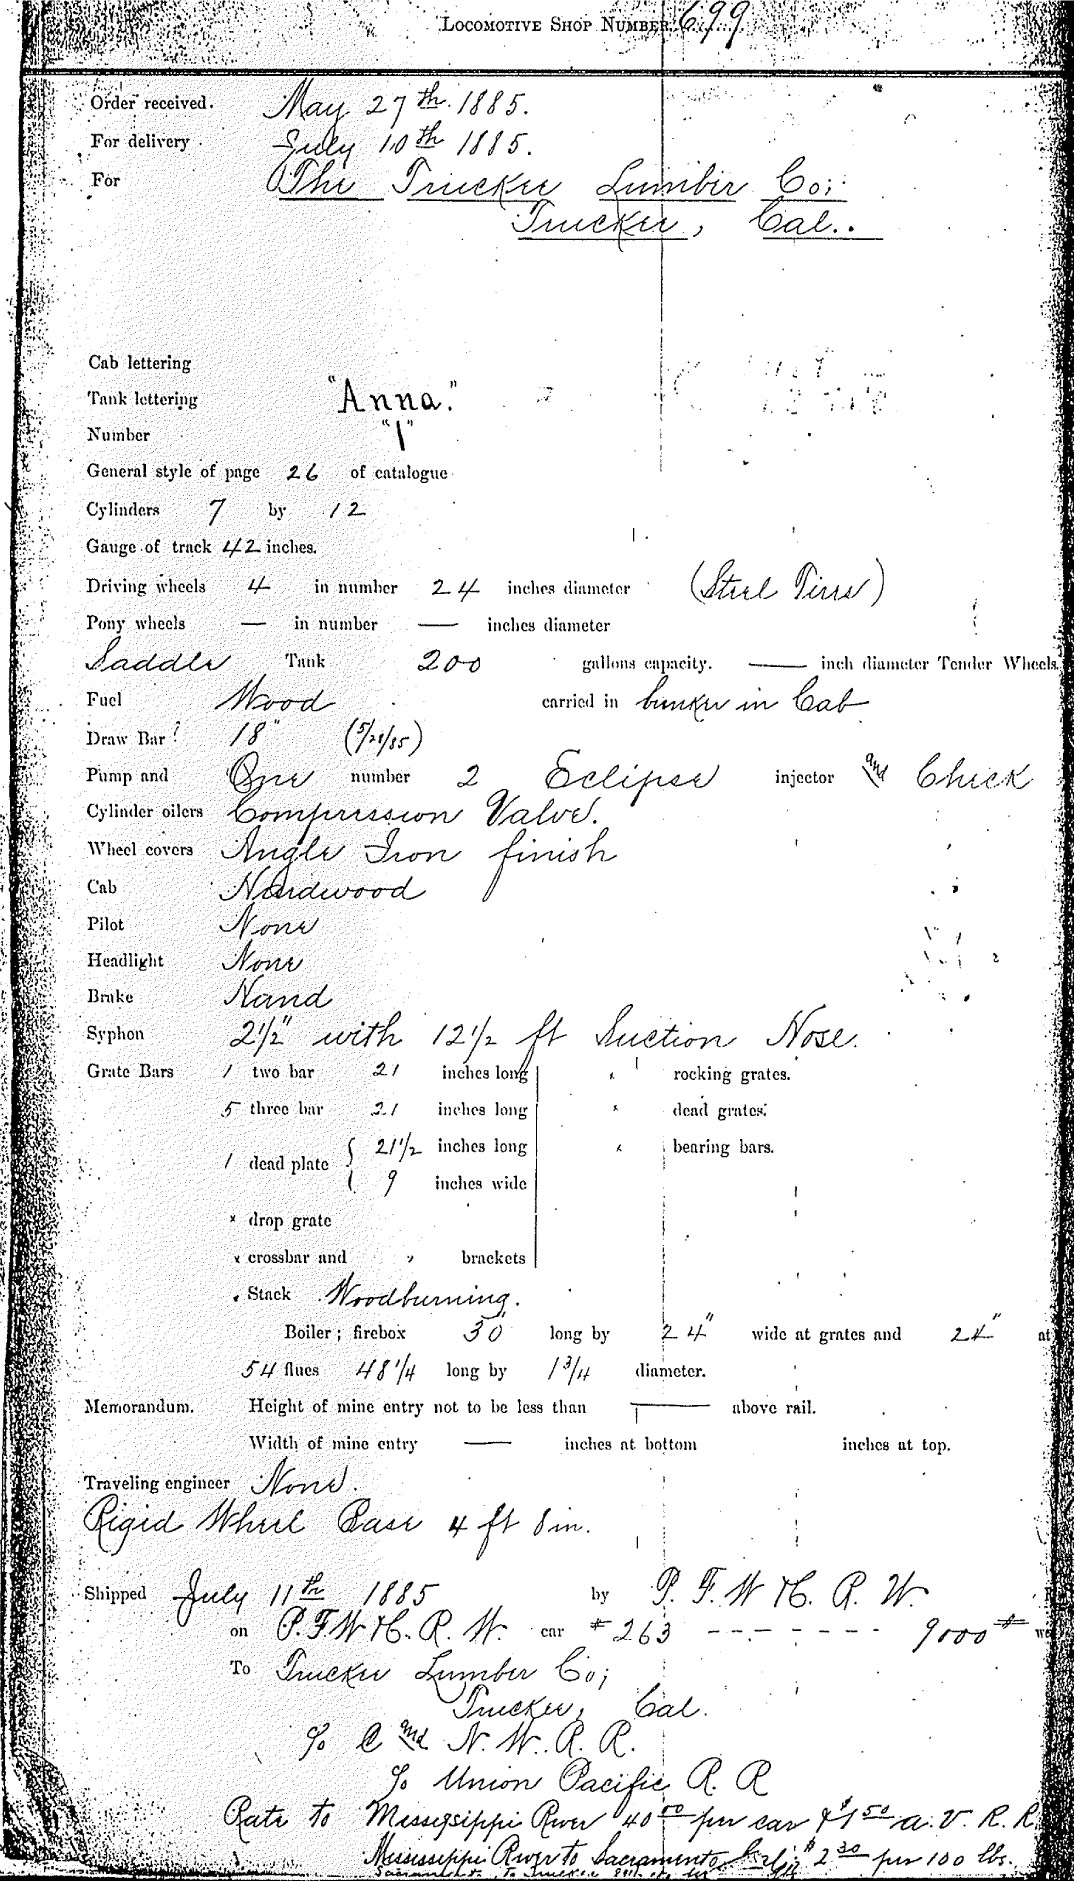 LOCOMOTIVE SHOP NUMBER 699
Order received. May 27th. 1885.
For delivery July 10th 1885.
For The Truckee Lumber Co;
Truckee, Cal..
Cab lettering
Tank lettering "Anna."
Number "1"
General style of page 26 of catalogue
Cylinders 7 by 12
Gauge of track 42 inches.
Driving wheels 4 in number 24 inches diameter (Steel Tires)
Pony wheels — in number — inches diameter
Saddle Tank 200 gallons capacity. — inch diameter Tender Wheels.
Fuel Wood carried in bunker in Cab
Draw Bar 18" (5/28/85)
Pump and One number 2 Eclipse injector and Check
Cylinder oilers Compression Valve.
Wheel covers Angle Iron finish
Cab Hardwood
Pilot None
Headlight None
Brake Hand
Syphon 2½" with 12½ ft Suction Hose.
Grate Bars 1 two bar 21 inches long x rocking grates.
5 three bar 21 inches long x dead grates.
1 dead plate { 21½ inches long x bearing bars.
9 inches wide
x drop grate
x crossbar and " brackets
Stack Woodburning.
Boiler; firebox 30" long by 24" wide at grates and 24" at
54 flues 48¼ long by 1¾ diameter.
Memorandum. Height of mine entry not to be less than — above rail.
Width of mine entry — inches at bottom inches at top.
Traveling engineer None.
Rigid Wheel Base 4 ft 8 in.
Shipped July 11th 1885 by P. F. W & C. R. W.
on P. F. W & C. R. W. car # 263 - - - - - - - 9000 # we
To Truckee Lumber Co;
Truckee, Cal.
℅ C and N. W. R. R.
℅ Union Pacific R. R
Rate to Missisippi River 40 50 per car & $1 50 a. V. R. R.
Mississippi River to Sacramento $2 30 per 100 lbs.
Sacramento to Truckee